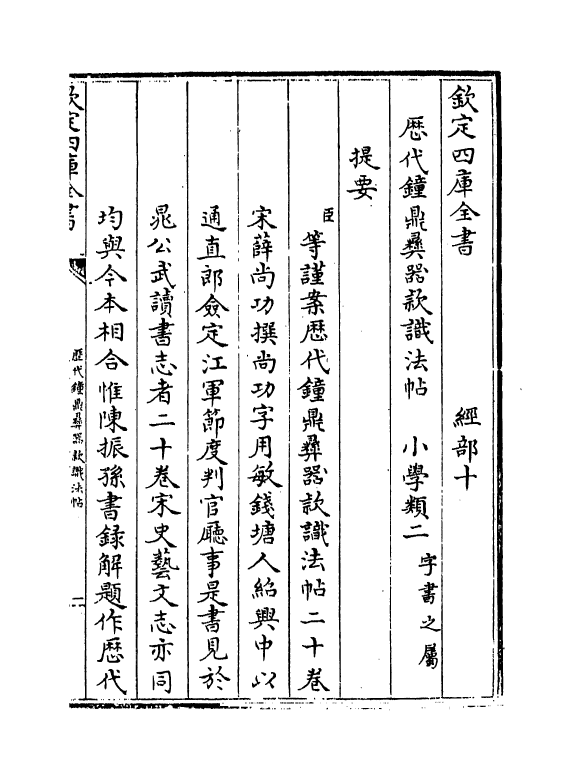 欽定四庫全書 經部十
歴代鐘鼎彞器款識法帖 小學類二 字書之屬
提要
臣等謹案歴代鐘鼎彞器款識法帖二十卷
宋薛尚功撰尚功字用敏錢塘人紹興中以
通直郎僉定江軍節度判官廳事是書見於
晁公武讀書志者二十卷宋史藝文志亦同
均與今本相合惟陳振孫書録解題作歴代
欽定四庫全書
歴代鐘鼎彞器款識法帖